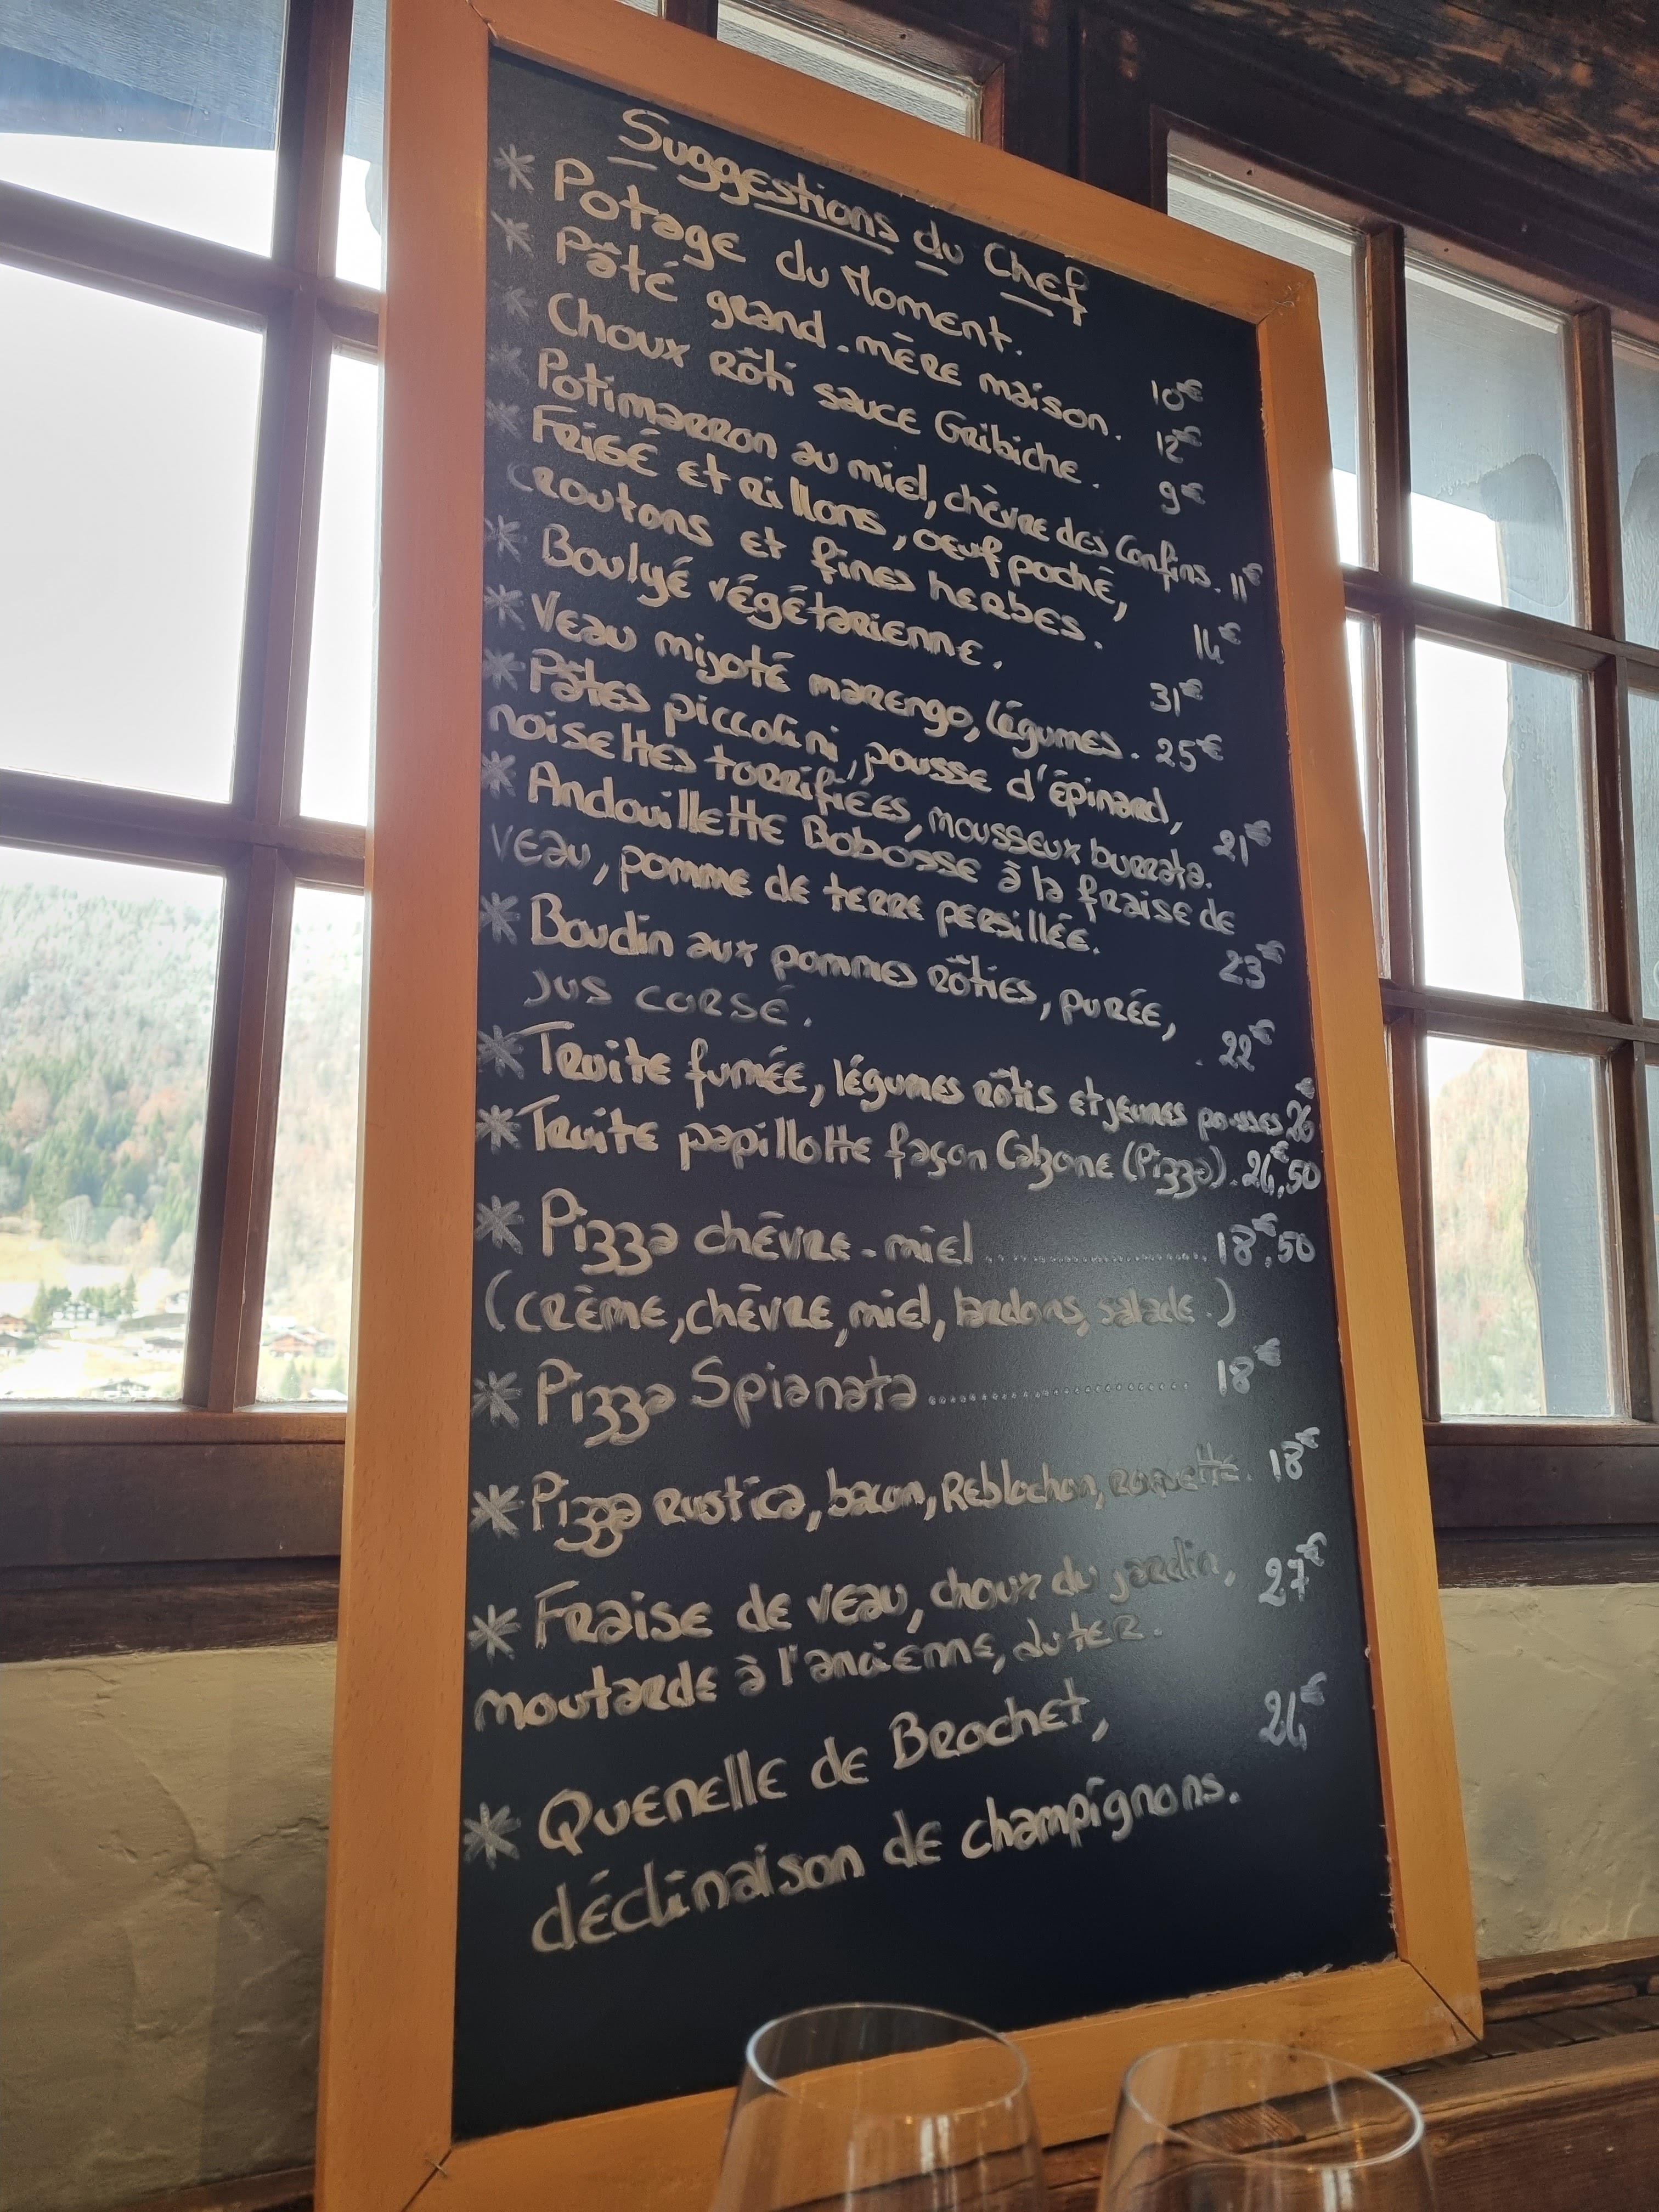 Suggestions du Chef
* Potage du Moment. 10€
* Pâté grand-mère maison. 12€
* Choux rôti sauce Gribiche. 9€
* Potimarron au miel, chèvre des Confins. 11€
* Frisé et rillons, oeuf poché,
croutons et fines herbes. 14€
* Boulgé végétarienne. 31€
* Veau mijoté marengo, légumes. 25€
* Pâtes piccolini, pousse d'épinard,
noisettes torrifiées, mousseux burrata. 21€
* Andouillette Bobosse à la fraise de
veau, pomme de terre persillée. 23€
* Boudin aux pommes rôties, purée,
jus corsé. 22€
* Truite fumée, légumes rôtis et jeunes pousses 26€
* Truite papillotte façon Calzone (Pizza). 24€,50
* Pizza chèvre-miel .................... 18€,50
(crème, chèvre, miel, lardons, salade.)
* Pizza Spianata ........................ 18€
* Pizza rustica, bacon, Reblochon, roquette. 18€
* Fraise de veau, choux du jardin, 27€
moutarde à l'ancienne,
* Quenelle de Brochet, 24€
déclinaison de champignons.